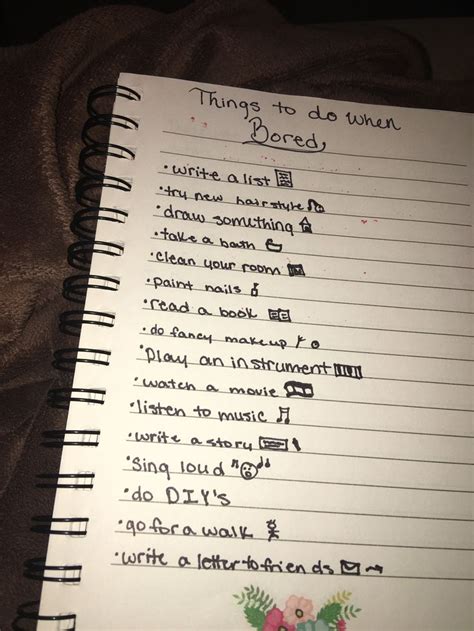 Things to do when
Bored
•write a list
•try new hairstyle
•draw something
•take a bath
•clean your room
•paint nails
•read a book
•do fancy makeup
•Play an instrument
•watch a movie
•listen to music
•write a story
•Sing loud
•do DIY's
•go for a walk
•write a letter to friends